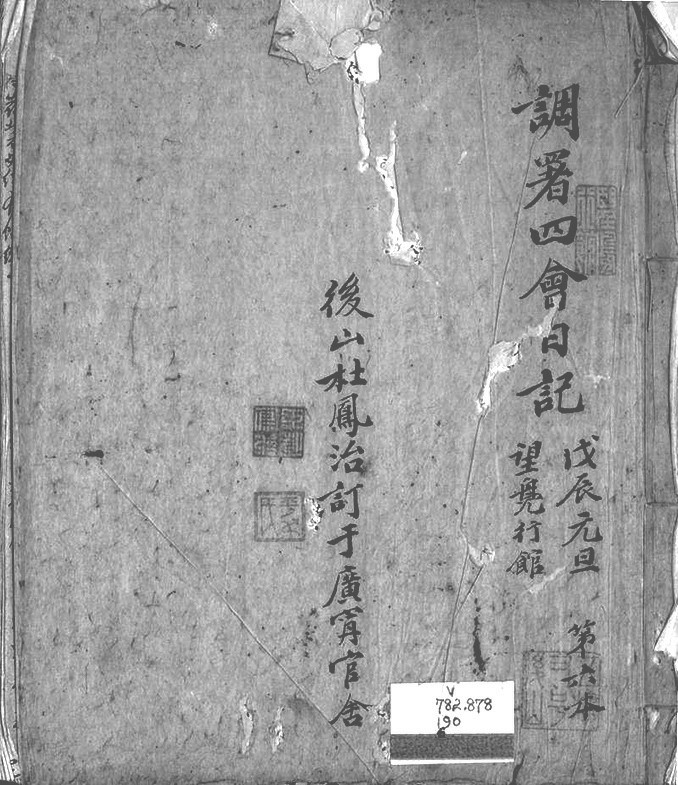 調署四會日記
戊辰元旦 第六本
望鳧行館
後山杜鳳治訂于廣甯官舍
V
782.878
190